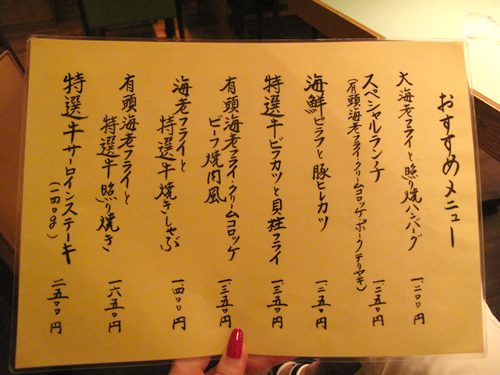 おすすめメニュー
大海老フライと照り焼ハンバーグ 一二〇〇円
スペシャルランチ 一二五〇円
(有頭海老フライ・クリームコロッケ・ポークテリヤキ)
海鮮ピラフと豚ヒレカツ 一二五〇円
特選牛ビフカツと貝柱フライ 一三五〇円
有頭海老フライ・クリームコロッケ
ビーフ焼肉風 一三五〇円
海老フライと
特選牛焼きしゃぶ 一四〇〇円
有頭海老フライと
特選牛照り焼き 一六五〇円
特選牛サーロインステーキ
(一四〇g) 二五〇〇円